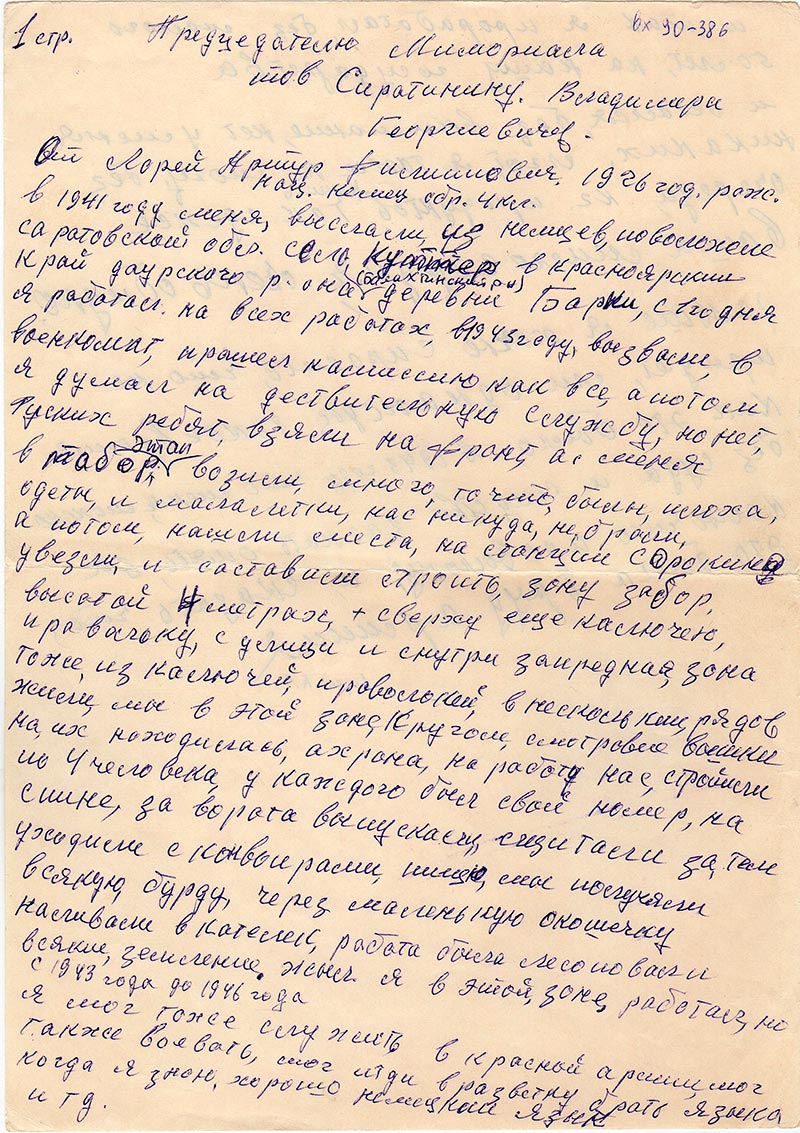 1 стр. Предцедателю Мимориала вх 90-386
тов Сиратинину. Владимира
Георгиевичу.
От Лорей Артур Филиппович. 1926 год. рожд.
нац. немец обр. 4 кл.
в 1941 году меня, выслали, из немцев, поволжске
саратовской обл. село, Куттер в красноярский
край даурского р. она (Балахтинский р-н) деревни Барки, с 1 годня
я работал. на всех работах, в 1943 году, вызвали, в
военкомат, прошел касмиссию как все, а потом
я думал на дествительную службу, но нет,
Руских ребят, взяли на фронт, а меня
в табор, этап возили, много, то что, были, плоха,
одеты, и малалетки, нас никуда, не брали,
а потом, нашли места, на станции Сорокино
увезли, и заставили строить, зону забор,
высотой 4 метрах, + сверху еще каслючею,
правалоку, с улици и снутри запредная, зона
тоже, из каслючей, проволокий, в несколький, рядов
жили, мы в этой зоне, Кругом, смотровые вышки
на, их находилась, ахрана, на работу нас, стройили
по 4 человека, у каждого был свой номер, на
спине, за ворота выпускали, сщитали за, тем
уходили с конвоирами, пищю, мы получяли
всякую, бурду, через маленькую окошечку
наливали в кателек, работа была лесоповал и
всякие, земленые. жыл я в этой, зоне, работал, но
с 1943 года до 1946 года
я мог тоже служить в красный армии, мог
также воевать, мог итди в разветку брать языка
когда я знаю, хорошо немецкий язык
и тд.